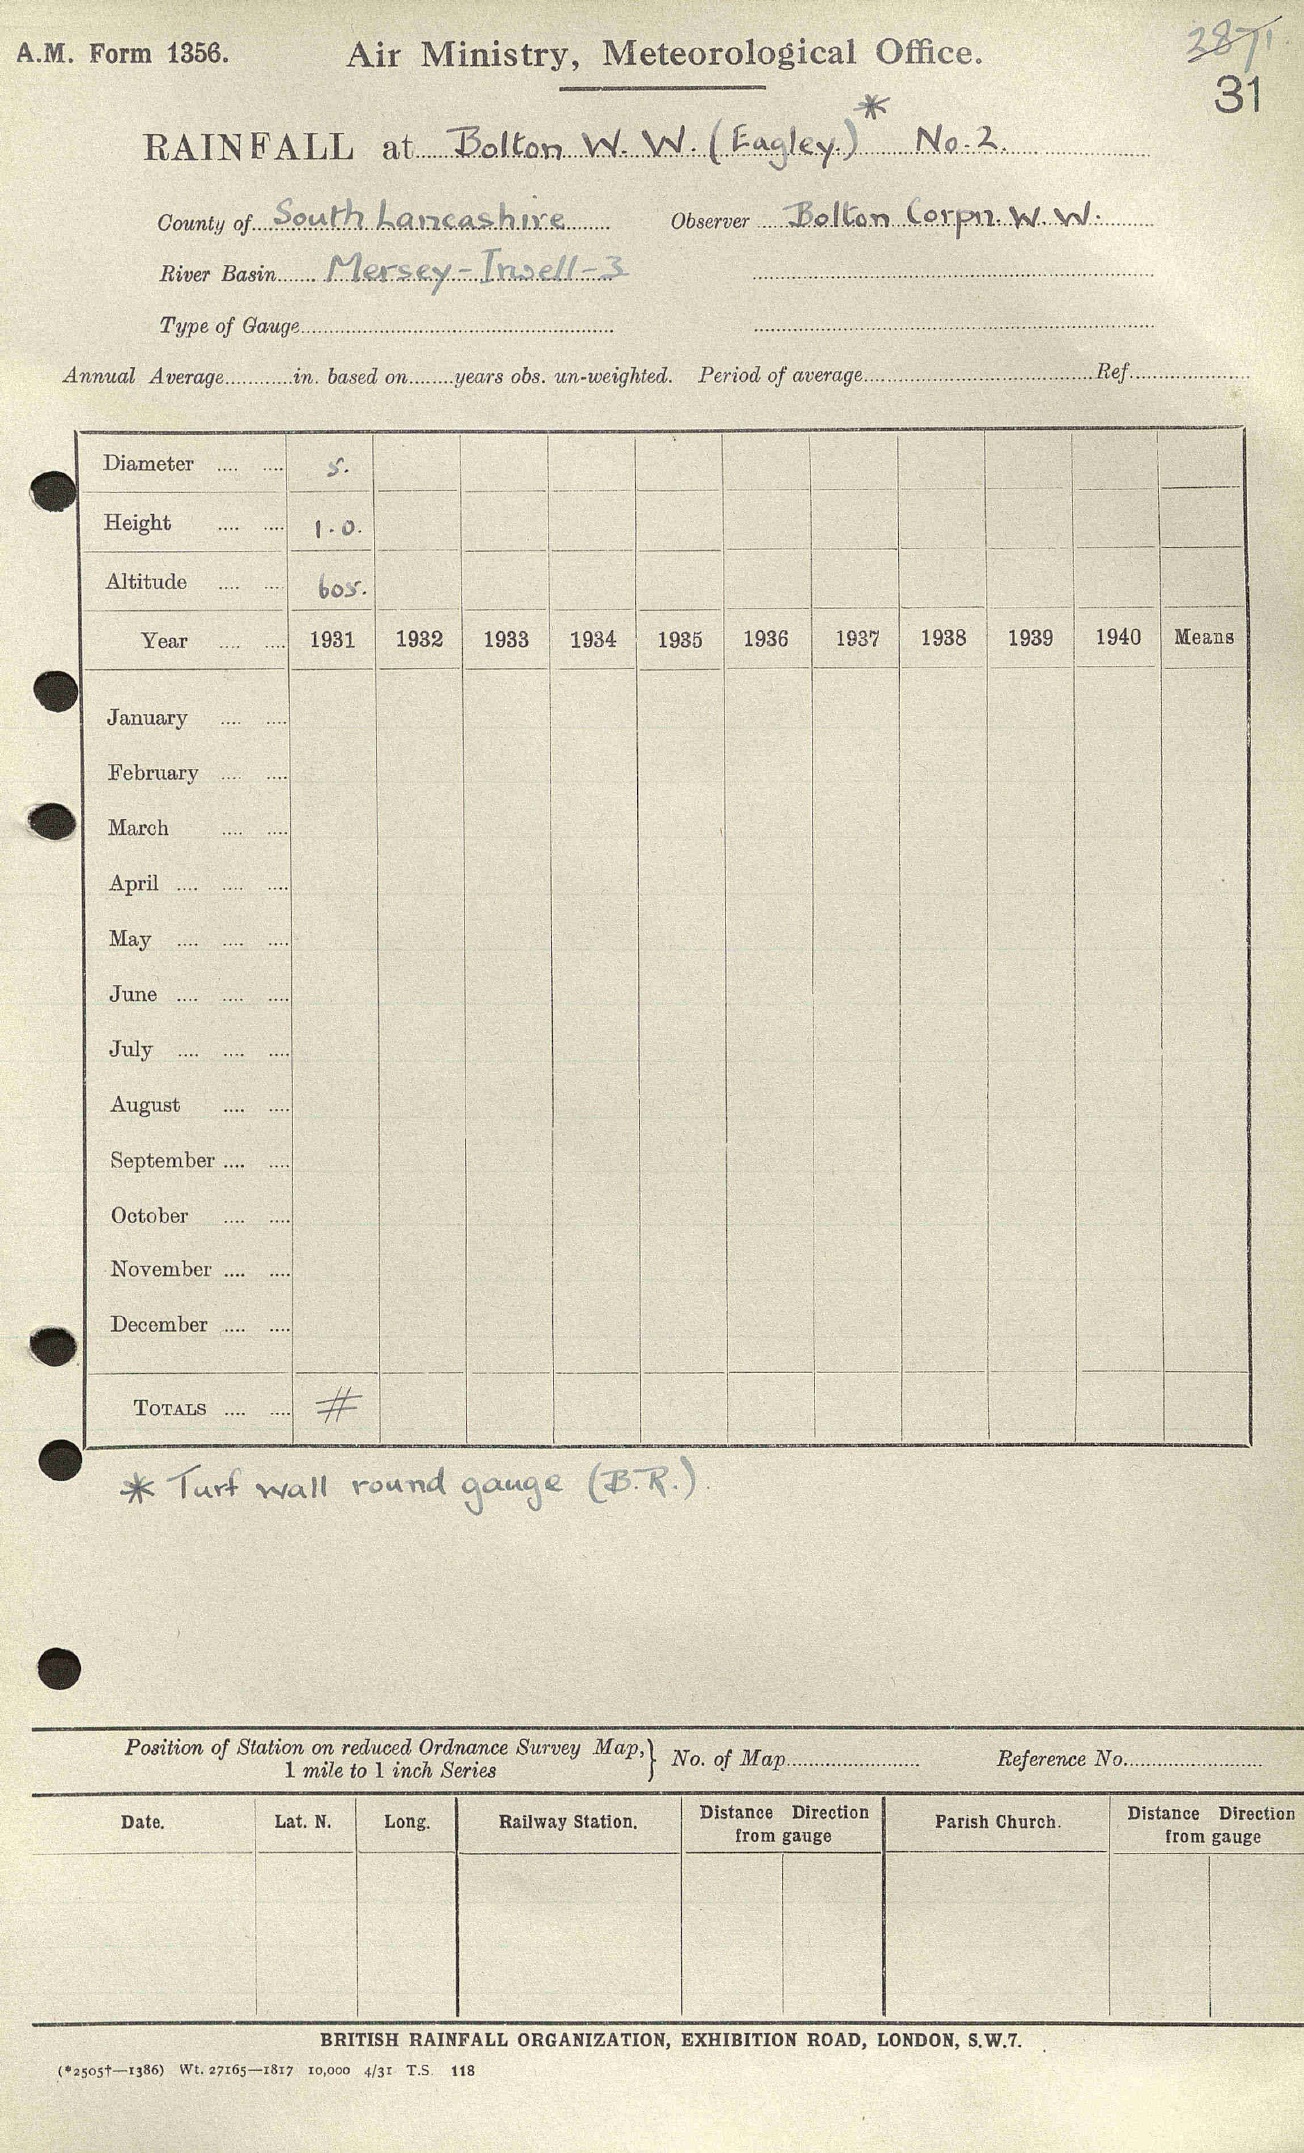 A.M. Form 1356.
Air Ministry, Meteorological Office.
2871
31
RAINFALL at Bolton W. W. (Eagley.)* No. 2.
County of South Lancashire Observer Bolton Corpn. W. W.
River Basin Mersey-Irwell-3
Type of Gauge
Annual Average in. based on years obs. un-weighted. Period of average Ref.
Diameter 5.
Height 1.0.
Altitude 605.
Year 1931 1932 1933 1934 1935 1936 1937 1938 1939 1940 Means
January
February
March
April
May
June
July
August
September
October
November
December
TOTALS #
* Turf wall round gauge (B.R.).
Position of Station on reduced Ordnance Survey Map, } No. of Map Reference No.
1 mile to 1 inch Series
Date. Lat. N. Long. Railway Station. Distance Direction Parish Church. Distance Direction
from gauge from gauge
BRITISH RAINFALL ORGANIZATION, EXHIBITION ROAD, LONDON, S.W.7.
(*2505†—1386) Wt. 27165—1817 10,000 4/31 T.S. 118